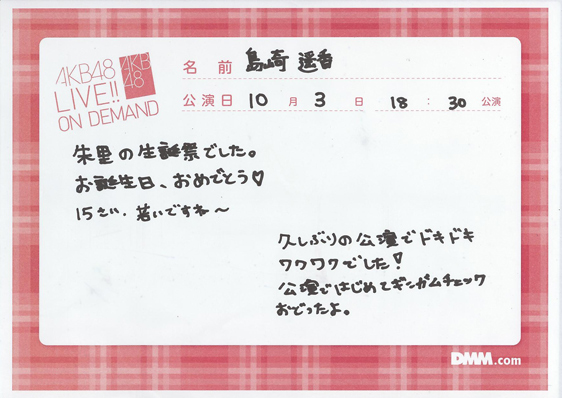 AKB48
LIVE!!
ON DEMAND
AKB
48
名前 島崎 遥香
公演日 10 月 3 日 18 : 30 公演
朱里の生誕祭でした。
お誕生日、おめでとう♡
15さい、若いですね〜
久しぶりの公演でドキドキ
ワクワクでした!
公演ではじめてギンガムチェック
おどったよ。
DMM.com